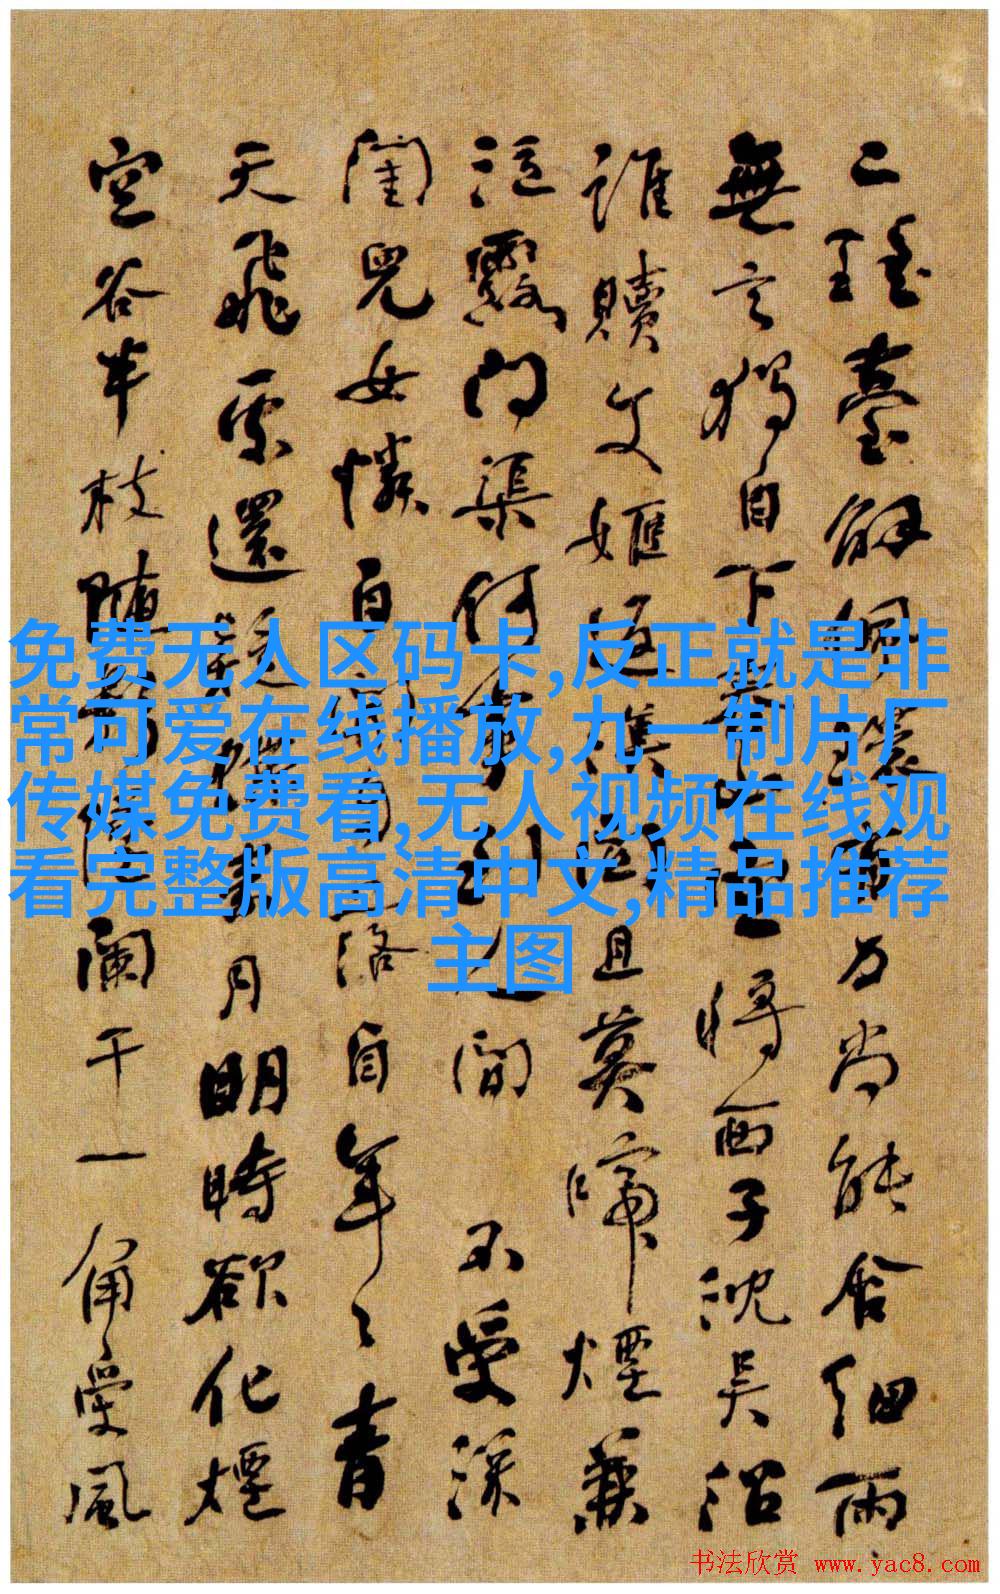 臺解佩環尚能含細雨
無言獨自下將西子沈吳沼
誰贖文姬返漢且莫啼煙兼
泣露問渠何事到人間不受深
閨兒女憐自開自落自年年青
天飛還疑月明時欲化煙
空谷半枝隨影闌干一角受風
免费无人区码卡,反正就是非
常可爱在线播放,九一制片厂
传媒免费看,无人视频在线观
看完整版高清中文,精品推荐
主图
书法欣赏 www.yac8.com